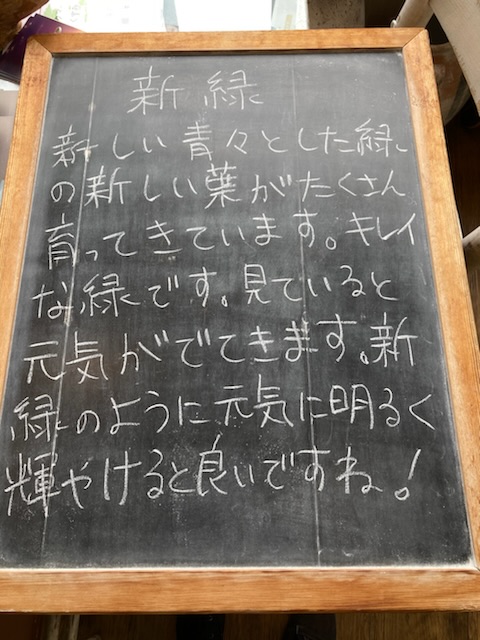 新緑
新しい青々とした緑
の新しい葉がたくさん
育ってきています。キレイ
な緑です。見ていると
元気がでてきます。新
緑のように元気に明るく
輝やけると良いですね！